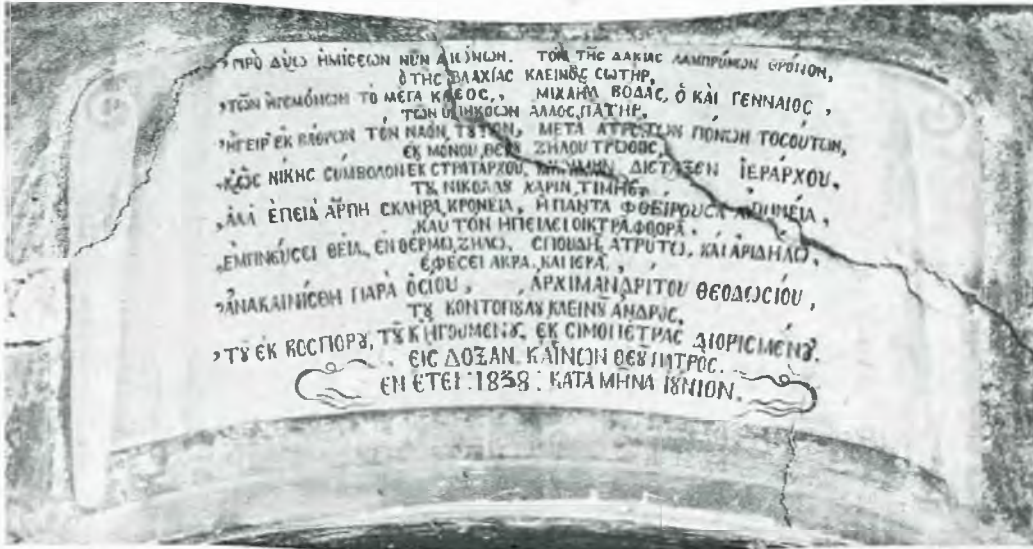 ΠΡῸ ΔΎΩ ἩΜΊΣΕΩΝ ΝΥ͂Ν ΑἸΏΝΩΝ. ΤῸΝ ΤΗ͂Σ ΔΑΚΊΑΣ ΛΑΜΠΡΎΝΩΝ ΘΡΌΝΟΝ,
Ὁ ΤΗ͂Σ ΒΛΑΧΊΑΣ ΚΛΕΙΝῸΣ ΣΩΤῊΡ,
ΤΩ͂Ν ἩΓΕΜΌΝΩΝ ΤΟ ΜΈΓΑ ΚΛΈΟΣ, ΜΙΧΑῊΛ ΒΟΔΑΣ, Ὁ ΚΑῚ ΓΕΝΝΑΙΟΣ,
ΤΩΝ ὙΠΗΚΟΩΝ ΑΛΛΟΣ ΠΑΤῊΡ,
ἬΓΕΙΡ ἘΚ ΒΑΘΡΩΝ ΤΟΝ ΝΑῸΝ, ΤȢΤΟΝ, ΜΕΤΑ ΑΤΡΥΤΩΝ ΠΟΝΩΝ ΤΟΣΟΎΤΩΝ,
ΕΚ ΜΌΝΟΥ ΘΕΙΟΥ ΖΗΛΟΥ ΤΡΩΘΕῚΣ,
ΝΙΚΗΣ ΣΥΜΒΟΛΟΝ ΕΚ ΣΤΡΑΤΑΡΧΟΥ, ΔΙΕΤΑΞΕΝ ἹΕΡΆΡΧΟΥ,
ΤȢ ΝΙΚΟΛΑȢ ΧΑΡΙΝ ΤΙΜΗΣ.
ἈΛΛ ἘΠΕῚ Ἁ ΑΡΠΗ ΣΚΛΗΡΑ, ΚΡΟΝΕΙΑ, Ἡ ΠΑΝΤΑ ΦΘΕΙΡΟΥΣΑ,
ΚΑΥΤΟΝ ΗΠΕΙΛΕΙ ΟΙΚΤΡΑ ΦΘΟΡΑ.
ἘΜΠΝΕΎΣΕΙ ΘΕΙΑ, ΕΝ ΘΕΡΜΩ ΖΗΛΩ, ΣΠΟΥΔΗ ΑΤΡΥΤΩ, ΚΑΙ ΑΡΙΔΗΛΩ,
ΕΦΕΣΕΙ ΑΚΡΑ, ΚΑΙ ΙΕΡΑ,
ἈΝΑΚΑΙΝΊΣΘΗ ΠΑΡᾺ ὉΣΙΟΥ, ἈΡΧΙΜΑΝΔΡΊΤΟΥ ΘΕΟΔΩΣΙΟΥ,
ΤȢ͂ ΚΛΕΙΝȢ͂ ἈΝΔΡῸΣ,
ΤȢ͂ ΕΚ ΒΟΣΠΟΡȢ, ΤȢ͂ Κ ἩΓΟΥΜΕΝȢ, ΕΚ ΣΙΜΟΠΕΤΡΑΣ ΔΙΟΡΙΣΜΕΝȢ.
ΕΙΣ ΔΟΞΑΝ ΚΑΙΝΩΝ ΘΕȢ ΠΑΤΡῸΣ.
ΕΝ ΕΤΕΙ: 1838: ΚΑΤΑ ΜΗΝΑ ΙȢΝΙΟΝ.